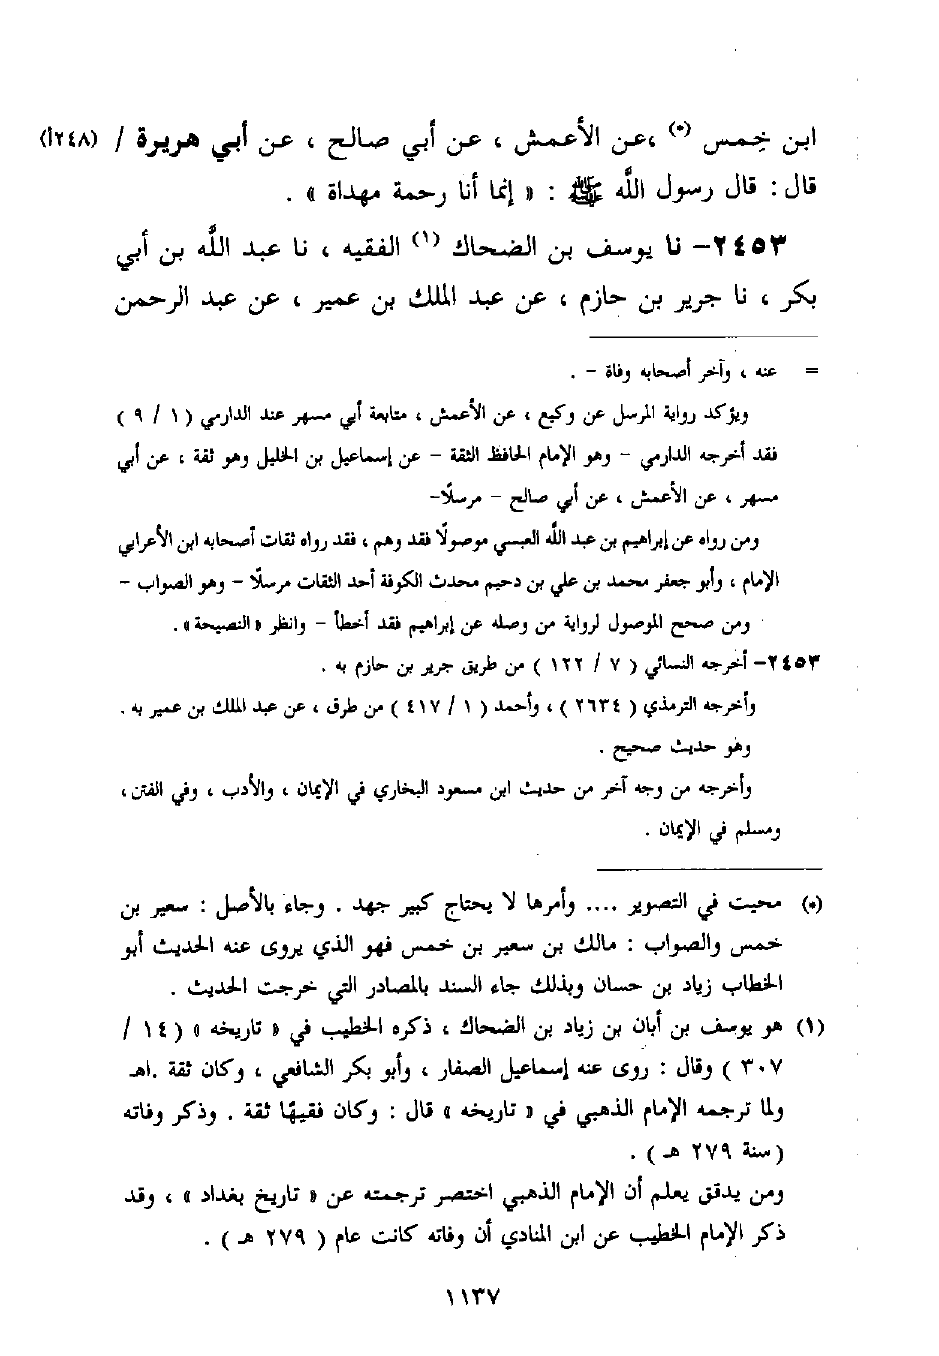 ابن خِمس (*) ،عن الأعمش ، عن أبي صالح ، عن أبي هريرة / (٢٤٨أ)
قال : قال رسول اللَّه ﷺ : « إنما أنا رحمة مهداة » .
٢٤٥٣– نا يوسف بن الضحاك (١) الفقيه ، نا عبد اللَّه بن أبي
بكر ، نا جرير بن حازم ، عن عبد الملك بن عمير ، عن عبد الرحمن
= عنه ، وآخر أصحابه وفاة – .
ويؤكد رواية المرسل عن وكيع ، عن الأعمش ، متابعة أبي مسهر عند الدارمي ( ١ / ٩ )
فقد أخرجه الدارمي – وهو الإمام الحافظ الثقة – عن إسماعيل بن الخليل وهو ثقة ، عن أبي
مسهر ، عن الأعمش ، عن أبي صالح – مرسلًا–
ومن رواه عن إبراهيم بن عبد اللَّه العبسي موصولًا فقد وهم ، فقد رواه ثقات أصحابه ابن الأعرابي
الإمام ، وأبو جعفر محمد بن علي بن دحيم محدث الكوفة أحد الثقات مرسلًا – وهو الصواب –
ومن صحح الموصول لرواية من وصله عن إبراهيم فقد أخطأ – وانظر « النصيحة » .
٢٤٥٣– أخرجه النسائي ( ٧ / ١٢٢ ) من طريق جرير بن حازم به .
وأخرجه الترمذي ( ٢٦٣٤ ) ، وأحمد ( ١ / ٤١٧ ) من طرق ، عن عبد الملك بن عمير به .
وهو حديث صحيح .
وأخرجه من وجه آخر من حديث ابن مسعود البخاري في الإيمان ، والأدب ، وفي الفتن ،
ومسلم في الإيمان .
(*) محيت في التصوير .... وأمرها لا يحتاج كبير جهد . وجاء بالأصل : سعير بن
خمس والصواب : مالك بن سعير بن خمس فهو الذي يروى عنه الحديث أبو
الخطاب زياد بن حسان وبذلك جاء السند بالمصادر التي خرجت الحديث .
(١) هو يوسف بن أبان بن زياد بن الضحاك ، ذكره الخطيب في « تاريخه » ( ١٤ /
٣٠٧ ) وقال : روى عنه إسماعيل الصفار ، وأبو بكر الشافعي ، وكان ثقة .اهـ
ولما ترجمه الإمام الذهبي في « تاريخه » قال : وكان فقيهًا ثقة . وذكر وفاته
( سنة ٢٧٩ هـ ) .
ومن يدقق يعلم أن الإمام الذهبي اختصر ترجمته عن « تاريخ بغداد » ، وقد
ذكر الإمام الخطيب عن ابن المنادي أن وفاته كانت عام ( ٢٧٩ هـ ) .
١١٣٧